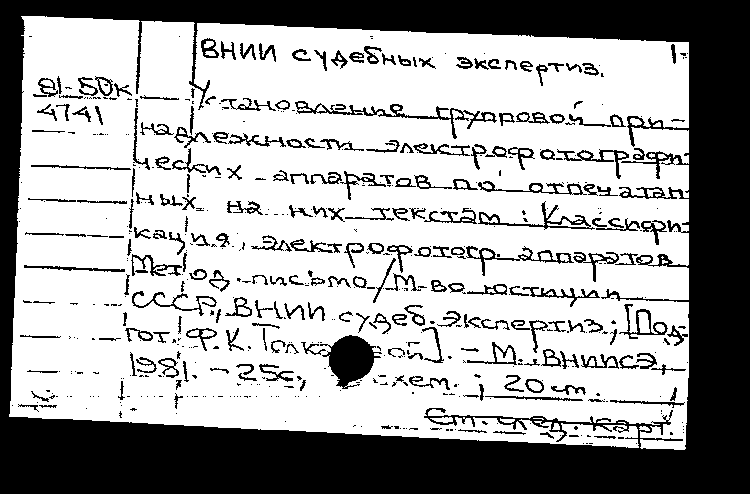 ВНИИ судебных экспертиз. 1-
81-50к
4741
Установление групповой при-
надлежности электрофотографи-
ческих аппаратов по отпечатан-
ных на них текстам : Классифи-
кация электрофотогр. аппаратов
Метод. письмо / М-во юстиции
СССР, ВНИИ судеб. экспертиз ; [Под-
гот. Ф. К. ]. - М. : ВНИИСЭ,
1981. - 25с, схем. ; 20 см.
См. след. карт.